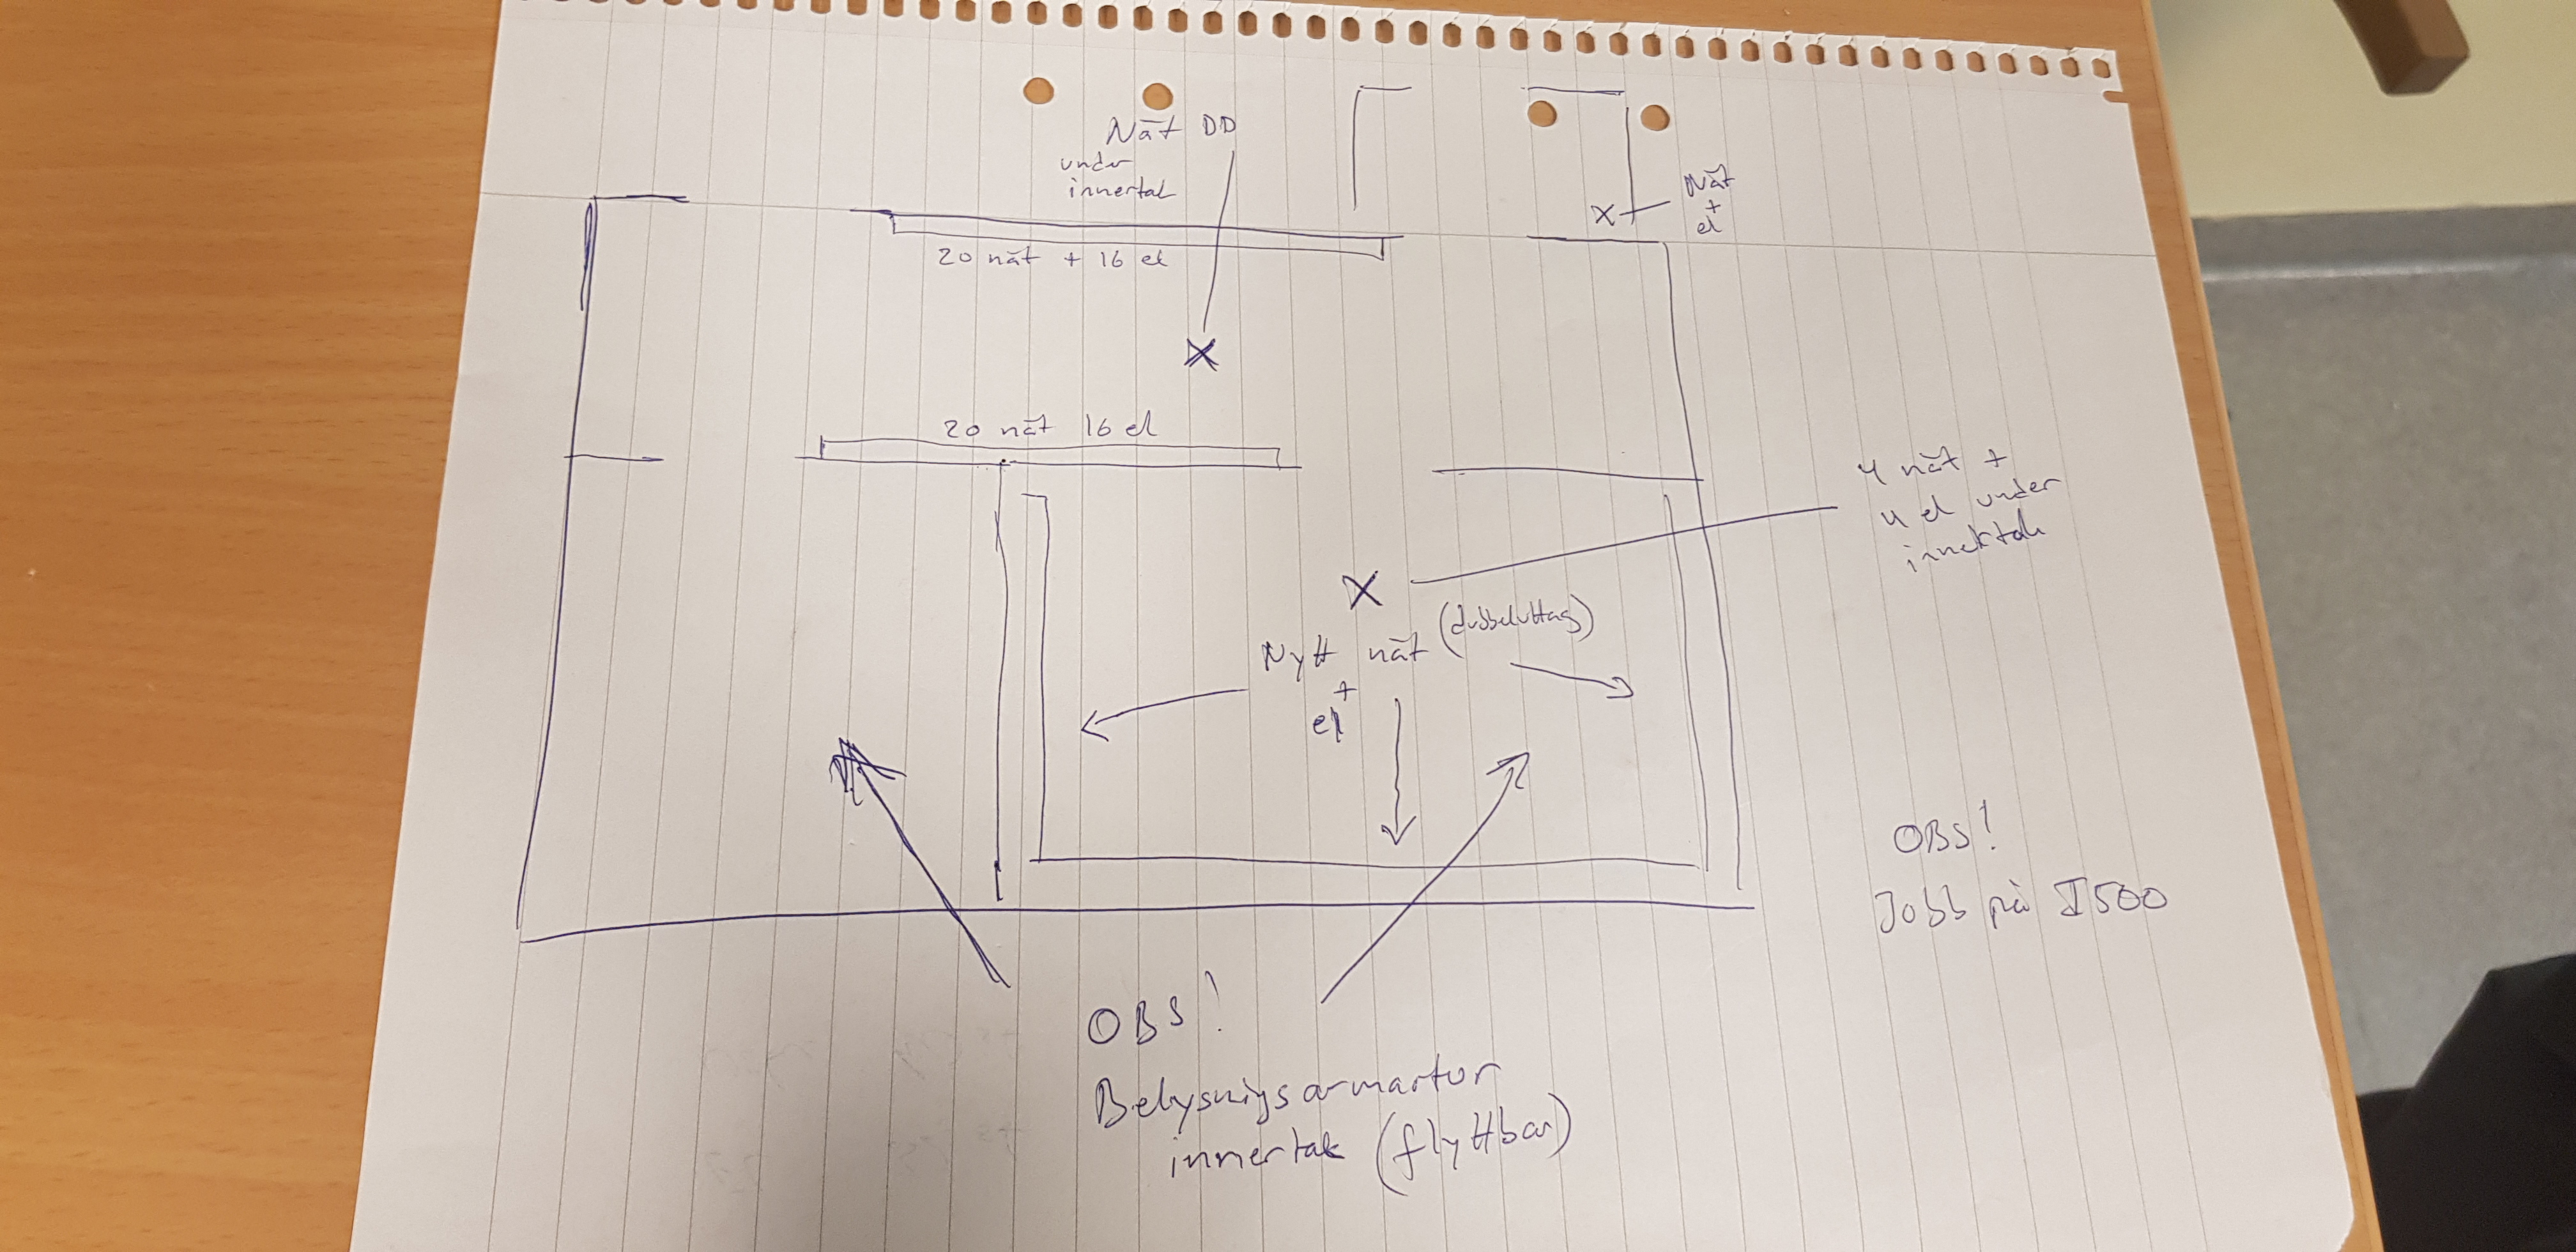 Nät DD
under
innertak
Nät
+
el
20 nät + 16 el
20 nät 16 el
4 nät +
4 el under
innertak
Nytt nät (dubbeluttag)
+
el
OBS!
Jobb på I500
OBS!
Belysnigsarmartur
innertak (flyttbar)